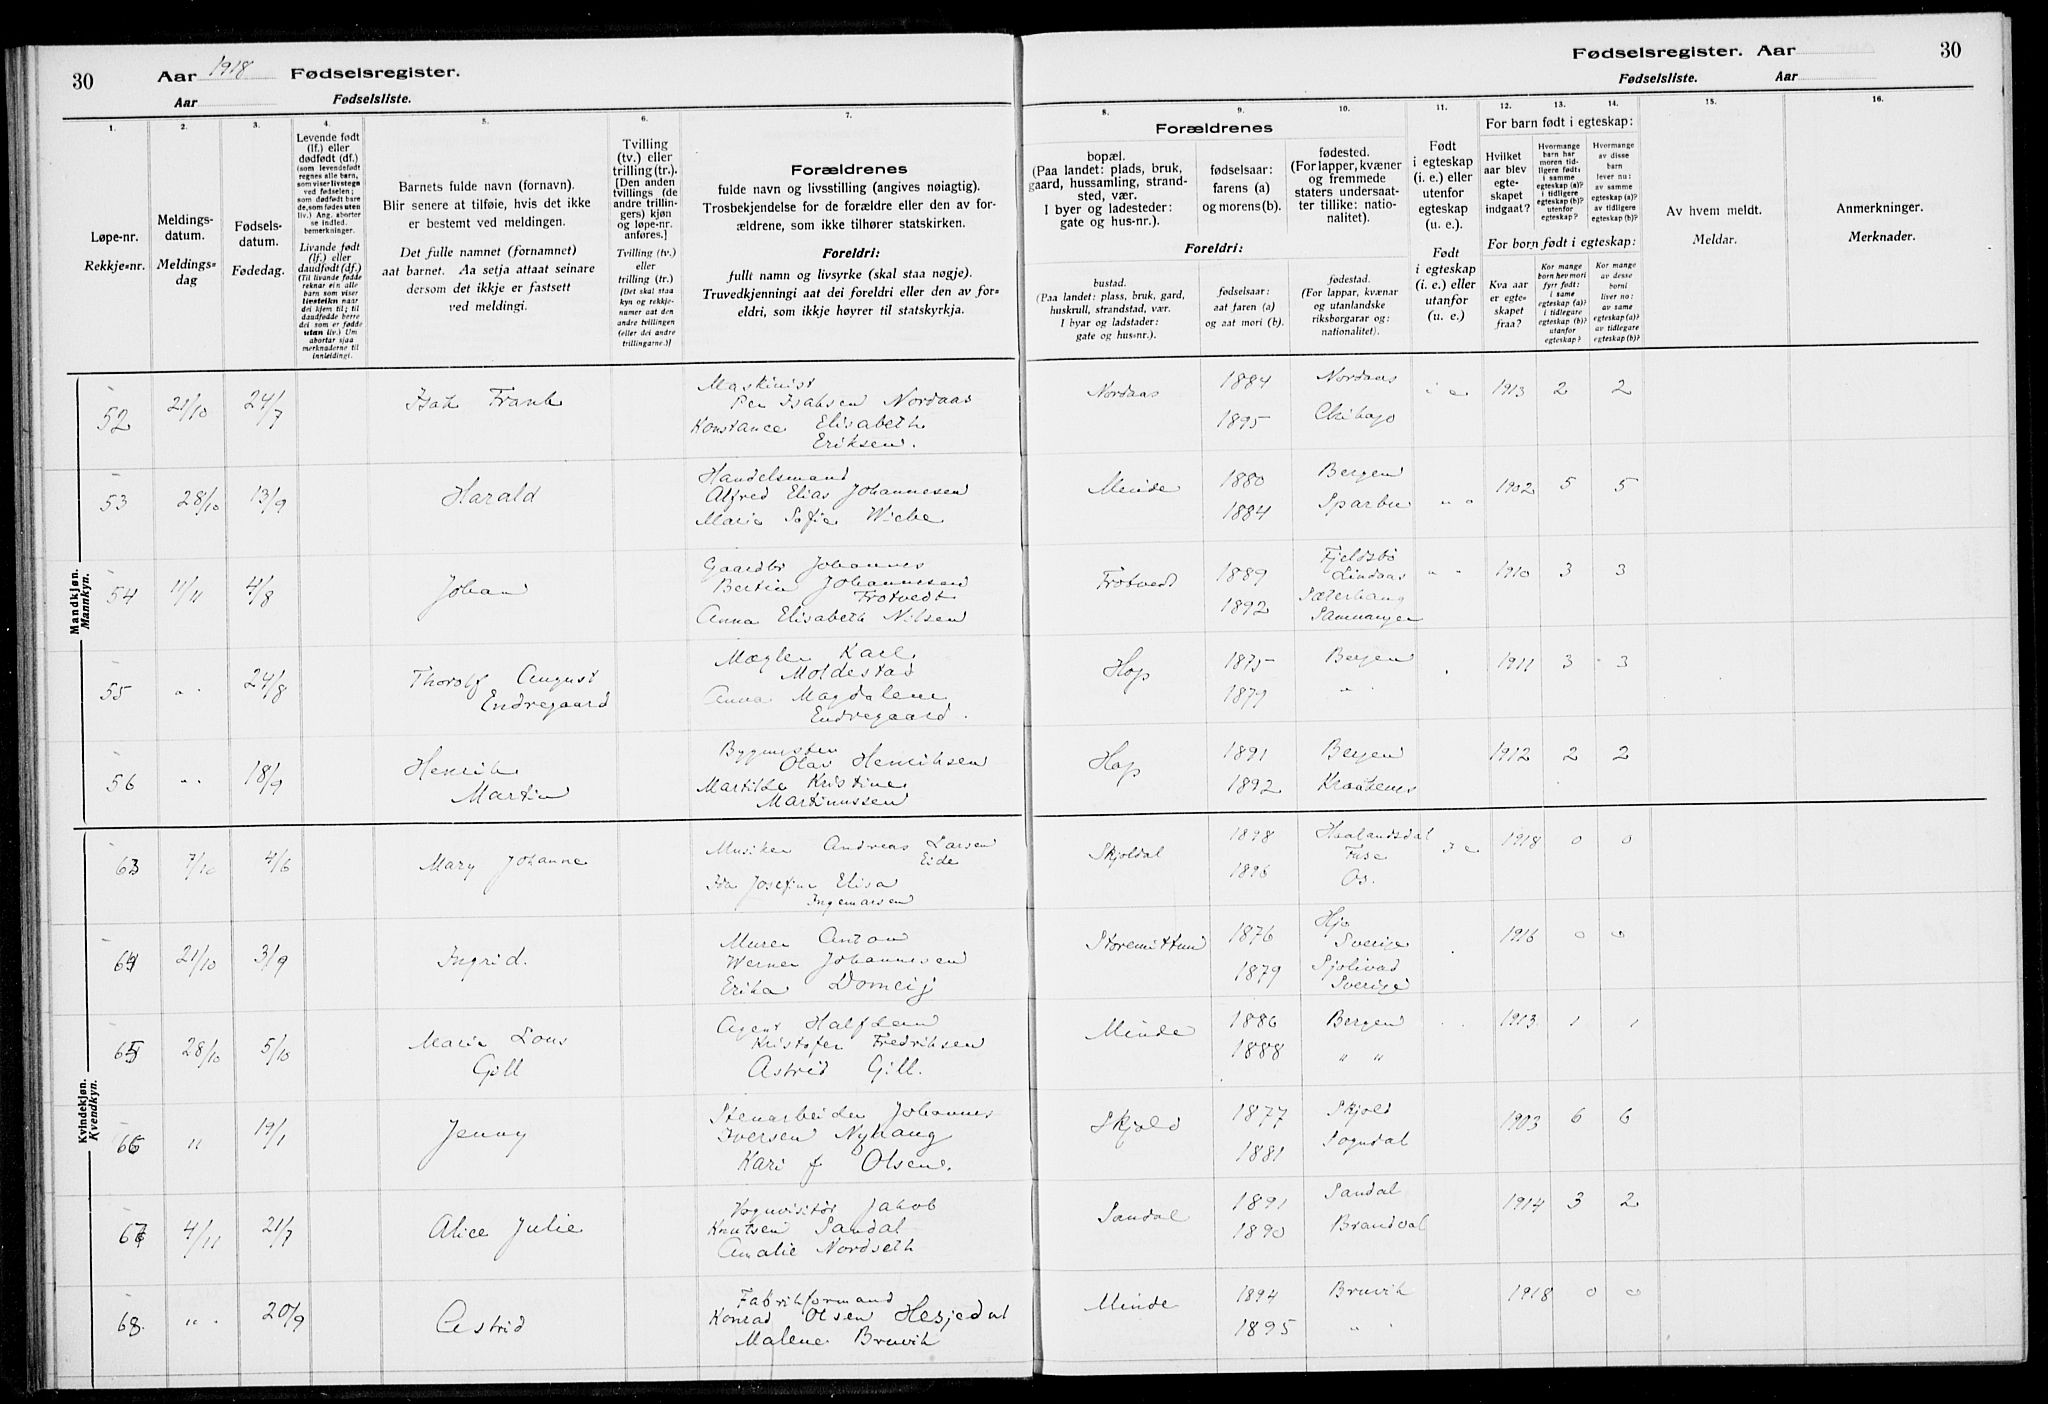 30 Aar 1918 Fødselsregister.
Aar Fødselsliste.
Fødselsregister. Aar 30
Fødselsliste. Aar
1. 2. 3. 4. 5. 6. 7. 8. 9. 10. 11. 12. 13. 14. 15. 16.
Løpe-nr.
Rekkje-nr.
Meldings-
datum.
Meldings-
dag
Fødsels-
datum.
Fødedag.
Levende født
(lf.) eller
dødfødt (df.)
(som levendefødt
regnes alle barn,
som viser livstegn
ved fødselen;
som dødfødt bare
de, som fødes uten
liv.) Ang. aborter
se indled.
bemerkninger.
Livande født
(lf.) eller
daudfødt (df.)
(Til livande fødde
reknar ein alle
barn som viser
livsteikn naar
dei kjem til; til
daudfødde berre
dei som er fødde
utan liv.) Um
abortar sjaa
merknaderne til
innleidingi.
Barnets fulde navn (fornavn).
Blir senere at tilføie, hvis det ikke
er bestemt ved meldingen.
Det fulle namnet (fornamnet)
aat barnet. Aa setja attaat seinare
dersom det ikkje er fastsett
ved meldingi.
Tvilling
(tv.) eller
trilling (tr.).
[Den anden
tvillings (de
andre trillin-
gers) kjøn
og løpe-nr.
anføres.]
Tvilling (tv.)
eller
trilling (tr.)
[Det skal staa
kyn og rekkje-
numer aat den
andre tvillingen
(eller dei andre
trillingarne.)]
Forældrenes
fulde navn og livsstilling (angives nøiagtig).
Trosbekjendelse for de forældre eller den av for-
ældrene, som ikke tilhører statskirken.
Foreldri:
fullt namn og livsyrke (skal staa nøgje).
Truvedkjenningi aat dei foreldri eller den av for-
eldri, som ikkje høyrer til statskyrkja.
Forældrenes
bopæl.
(Paa landet: plads, bruk,
gaard, hussamling, strand-
sted, vær.
I byer og ladesteder:
gate og hus-nr.).
fødselsaar:
farens (a)
og morens (b).
fødested.
(For lapper, kvæner
og fremmede
staters undersaat-
ter tillike: natio-
nalitet).
Foreldri:
bustad.
(Paa landet: plass, bruk, gard,
huskrull, strandstad, vær.
I byar og ladstader:
gate og hus-nr.).
fødselsaar:
aat faren (a)
og aat mori (b).
fødestad.
(For lappar, kvænar
og utanlandske
riksborgarar og:
nationalitet).
Født
i egteskap
(i. e.) eller
utenfor
egteskap
(u. e.).
Født
i egteskap
(i. e.) eller
utanfor
(u. e.)
For barn født i egteskap:
Hvilket
aar blev
egte-
skapet
indgaat?
Hvormange
barn har
moren tid-
ligere født:
i samme
egteskap (a)?
i tidligere
egteskap (b)?
utenfor
egteskap?
Hvormange
av disse
barn
lever nu:
av samme
egteskap (a)?
av tidligere
egteskap (b)?
For born født i egteskap:
Kva aar
er egte-
skapet
fraa?
Kor mange
born hev mori
fyrr født:
i same
egteskap (a)?
i tidlegare
egteskap (b)?
utanfor
egteskap?
Kor mange
av desse
borni
liver no:
av same
egteskap (a)?
av tidlegare
egteskap (b)?
Av hvem meldt.
Meldar.
Anmerkninger.
Merknader.
Mandkjøn.
Mannkyn.
52 21/10 24/7 Isak Frank Maskinist
Per Isaksen Nordaas
Konstance Elisabeth
Eriksen.
Nordaas 1884 Nordaas i e 1913 2 2
1895 Chikago
53 28/10 13/9 Harald Handelsmand
Alfred Elias Johannesen
Marie Sofie Wiebe
Minde 1880 Bergen 1902 5 5
1884 Sparbu " "
54 11/11 4/8 Johan Gaardbr Johannes
Bertin Johannesen
Frotvedt
Anna Elisabeth Nilsen
Frotvedt 1889 Fjeldsbø
Lindaas " " 1910 3 3
1892 Sæterhaug
Samnanger
55 " 24/8 Thorolf August
Endregaard
Mægler Karl
Moldestad
Anna Magdalene
Endregaard.
Hop 1875 Bergen 1911 3 3
1879 "
56 " 18/9 Henrik
Martin
Bygmester
Olav Henriksen
Martilde Kristine
Martinussen
Hop 1891 Bergen 1912 2 2
1892 Kraakenes
Kvindekjøn.
Kvendkyn.
63 7/10 4/6 Mary Johanne Musiker Andreas Larsen
Eide
Ida Josefine Elisa
Ingemarsen
Skjoldal 1898 Haalandsdal
Fuse i e 1918 0 0
1896 Os.
64 21/10 3/9 Ingrid. Murer Anton
Werner Johannesen
Erika Domeij
Storemittun 1876 Hjo
Sverige 1916 0 0
1879 Sjolivad
Sverige
65 28/10 5/10 Marie Lous
Gill
Agent Halfdan
Kristofer Fredriksen
Astrid Gill.
Minde 1886 Bergen 1913 1 1
1888 " "
66 " 19/1 Jenny Stenarbeider Johannes
Iversen Nyhaug
Kari f Olsen.
Skjold 1877 Skjold 1903 6 6
1881 Sogndal
67 4/11 21/7 Alice Julie Vognvisitør Jakob
Knutsen Sandal
Amalie Nordseth
Sandal 1891 Sandal 1914 3 2
1890 Brandval
68 " 20/9 Astrid Fabrikformand
Konrad Olsen Hesjedal
Malene Bruvik
Minde 1894 Bruvik 1918 0 0
1895 "